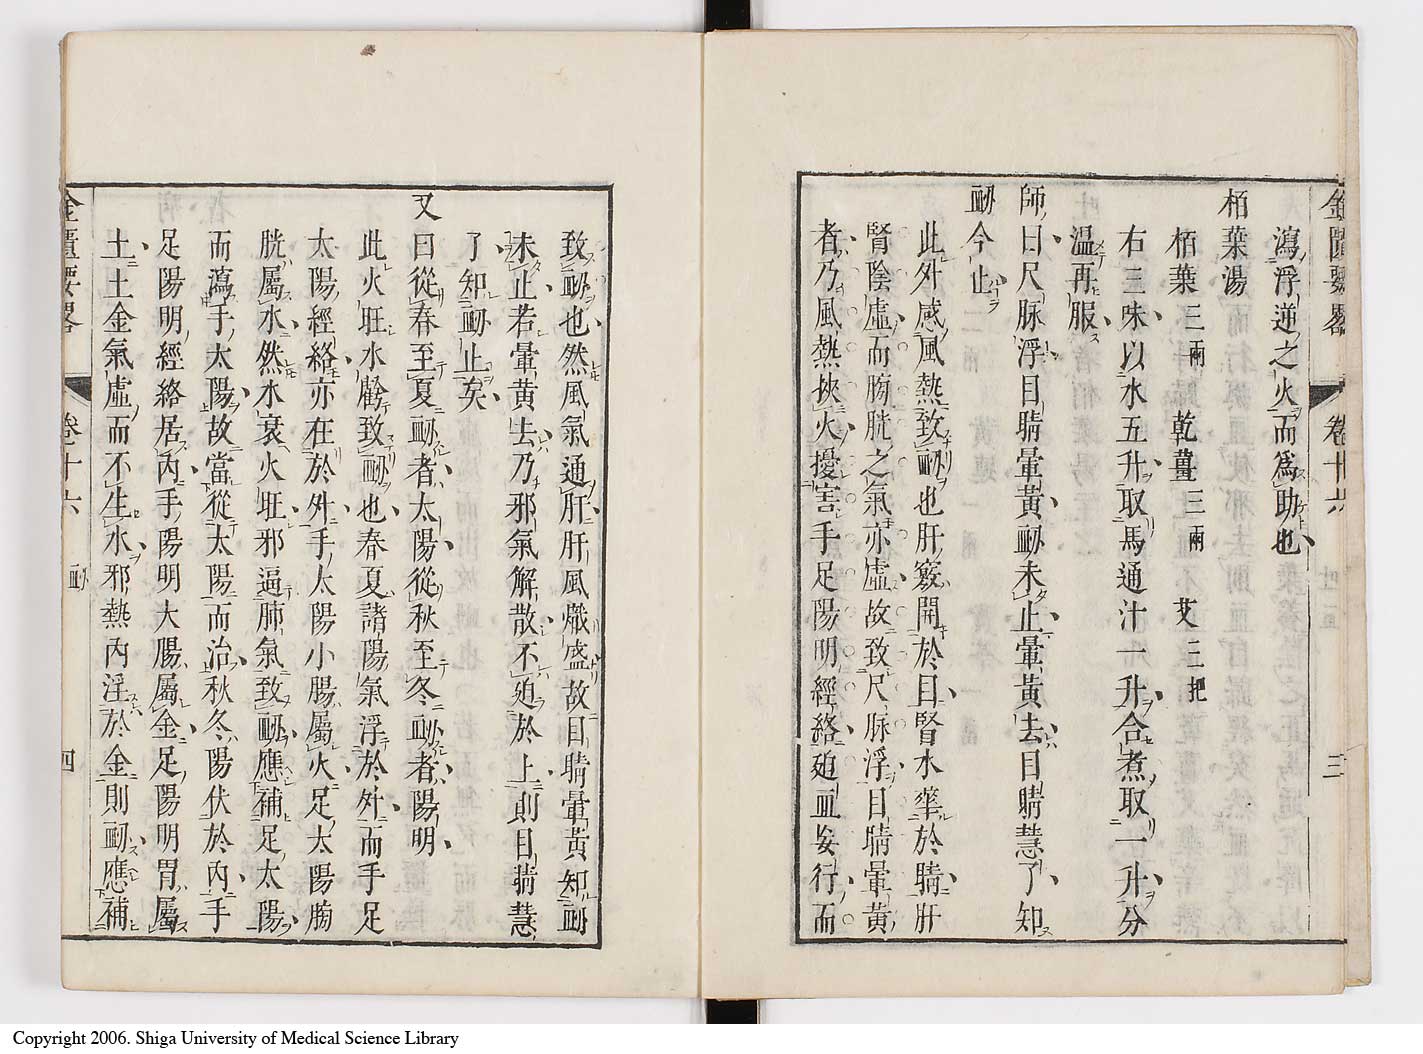 金匱要畧 卷十六 吐血 三
瀉浮逆之火而爲助也
栢葉湯
栢葉三兩 乾薑三兩 艾三把
右三味以水五升取馬通汁一升合煮取一升分
温再服
師曰尺脉浮目睛暈黃衂未止暈黃去目睛慧了知
衂今止
此外感風熱致衂也肝竅開於目腎水華於睛肝
腎陰虛而膀胱之氣亦虛故致尺脉浮目睛暈黃
者乃風熱挾火擾害手足陽明經絡廹血妄行而
致衂也然風氣通肝肝風熾盛故目睛暈黃知衂
未止若暈黃去乃邪氣解散不廹於上則目睛慧
了知衂止矣
又曰從春至夏衂者太陽從秋至冬衂者陽明
此火旺水虧致衂也春夏諸陽氣浮於外而手足
太陽經絡亦在於外手太陽小腸屬火足太陽膀
胱屬水然水衰火旺邪逼肺氣致衂應補足太陽
而瀉手太陽故當從太陽而治秋冬陽伏於內手
足陽明經絡居內手陽明大腸屬金足陽明胃屬
土土金氣虛而不生水邪熱內淫於金則衂應補
金匱要畧 卷十六 衂 四
Copyright 2006. Shiga University of Medical Science Library